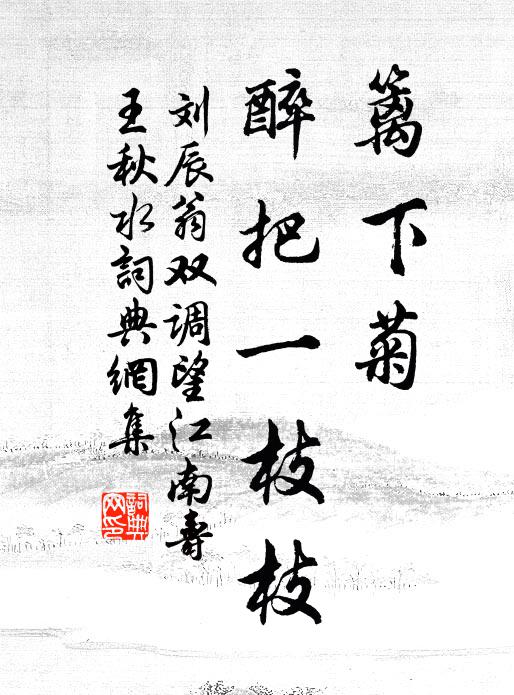 篱下菊
醉把一枝枝
刘辰翁双调望江南寿
王秋水詞典網集
詞典
网印